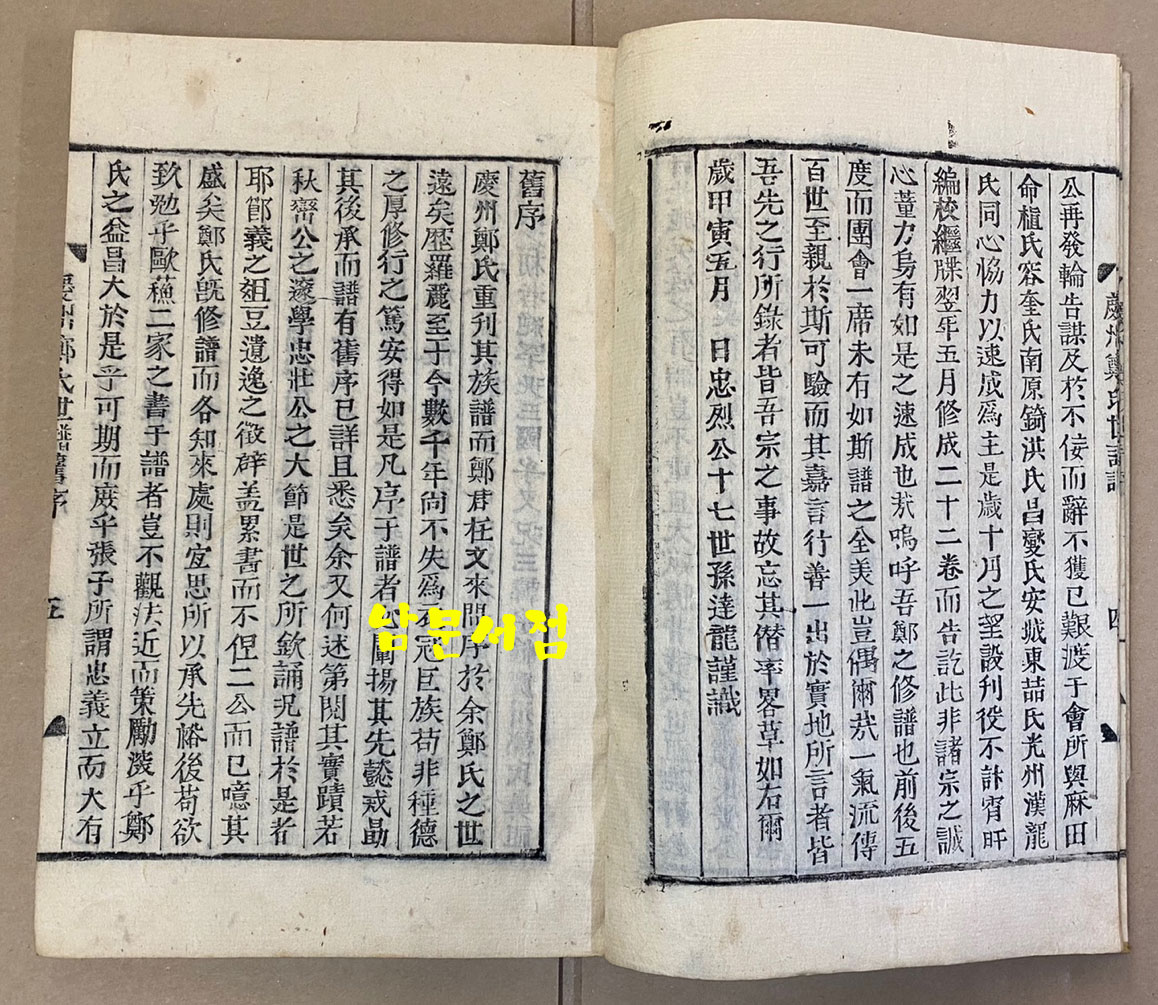 慶州鄭氏世譜
四
公再發輪告謀及於不佞而辭不獲已艱渡于會所與麻田
命植氏容奎氏南原錡洪氏昌燮氏安城東喆氏光州漢龍
氏同心恊力以速成爲主是歲十月之望設刊役不訸宵旰
編校繼牒翌年五月修成二十二卷而告訖此非諸宗之誠
心董力烏有如是之速成也㢤嗚呼吾鄭之修譜也前後五
度而團會一席未有如斯譜之全美此豈偶爾㢤一氣流傳
百世至親於斯可驗而其嘉言行善一出於實地所言者皆
吾先之行所錄者皆吾宗之事故忘其僭率畧草如右爾
歲甲寅五月 日忠烈公十七世孫達龍謹識
舊序
慶州鄭氏重刊其族譜而鄭君在文來問序於余鄭氏之世
遠矣歷羅麗至于今數千年尙不失爲衣冠巨族苟非種德
之厚修行之篤安得如是凡序于譜者闡揚其先懿戒勖
其後承而譜有舊序已詳且悉矣余又何述第閱其實蹟若
秋齋公之邃學忠壯公之大節是世之所欽誦况譜於是者
耶節義之俎豆遺逸之徵辟盖累書而不但二公而已噫其
盛矣鄭氏旣修譜而各知來處則宜思所以承先裕後苟欲
致勉乎歐蘓二家之書于譜者豈不觀法近而策勵㴱乎鄭
氏之益昌大於是乎可期而庶乎張子所謂忠義立而大有
慶州鄭氏世譜舊序
五
남문서점